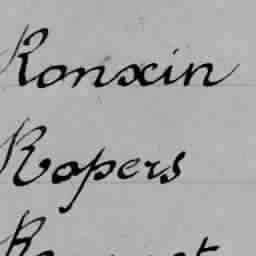 Ronxin
Ropers